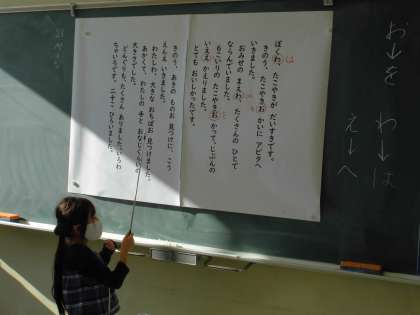 お→を
わ→は
え→へ
ぼくわ、たこやきが だいすきです。
は
きのう、たこやきお かいに アピタへ
いきました。
おみせの まえわ、たくさんの ひとで
ならんでいました。
6こいりの たこやきお かって、じぶんの
いええ かえりました。
とても おいしかったです。
きのう、あきの ものお 見つけに、こう
えんえ いきました。
わたしわ、大きな おちばお 見つけました。
あかくて、わたしの 手と おなじくらいの
大きさでした。
どんぐりも、たくさん ありました。いろわ
ちゃいろです。二十こ ひろいました。